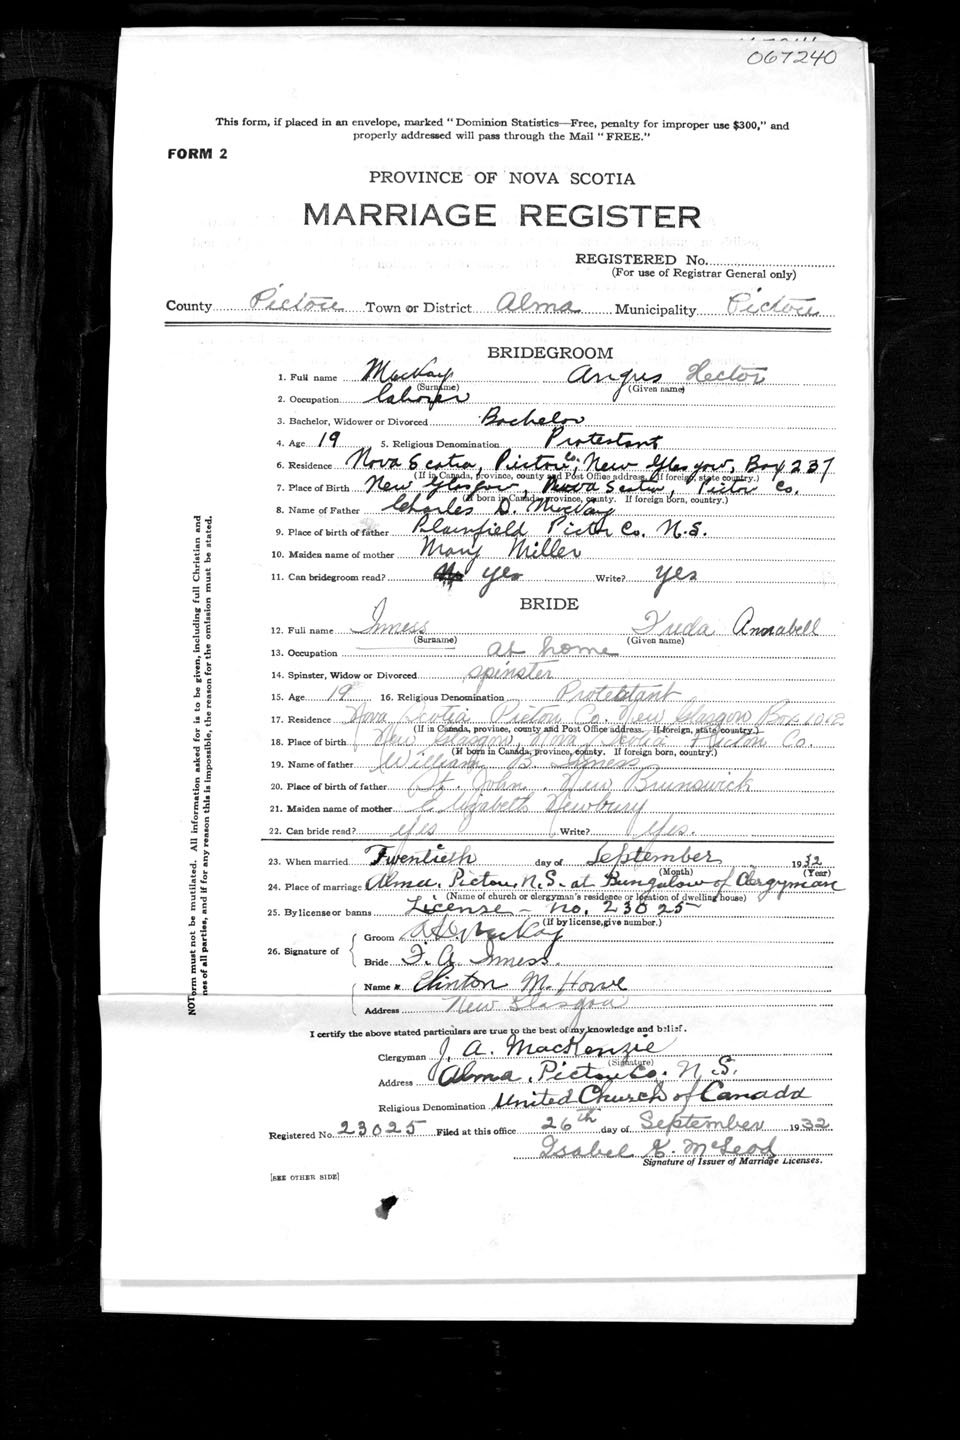 067240
This form, if placed in an envelope, marked "Dominion Statistics—Free, penalty for improper use $300," and
properly addressed will pass through the Mail "FREE."
FORM 2
PROVINCE OF NOVA SCOTIA
MARRIAGE REGISTER
REGISTERED No.
(For use of Registrar General only)
County Pictou Town or District Alma Municipality Pictou
BRIDEGROOM
1. Full name MacKay Angus Hector
(Surname) (Given name)
2. Occupation Laborer
3. Bachelor, Widower or Divorced Bachelor
4. Age 19 5. Religious Denomination Protestant
6. Residence Nova Scotia, Pictou Co., New Glasgow, Box 237
(If in Canada, province, county and Post Office address. If foreign, state country.)
7. Place of Birth New Glasgow, Nova Scotia, Pictou Co.
(If born in Canada, province, county. If foreign born, country.)
8. Name of Father Charles D. MacKay
9. Place of birth of father Plainfield Pictou Co. N.S.
10. Maiden name of mother Mary Miller
11. Can bridegroom read? yes Write? yes
BRIDE
12. Full name Inness Fuda Annabell
(Surname) (Given name)
13. Occupation at home
14. Spinster, Widow or Divorced spinster
15. Age 19 16. Religious Denomination Protestant
17. Residence Nova Scotia Pictou Co. New Glasgow Box 1012
(If in Canada, province, county and Post Office address. If foreign, state country.)
18. Place of birth New Glasgow, Nova Scotia Pictou Co.
(If born in Canada, province, county. If foreign born, country.)
19. Name of father William B. Inness
20. Place of birth of father St. John, New Brunswick
21. Maiden name of mother Elizabeth Newbury
22. Can bride read? yes Write? yes.
23. When married Twentieth day of September 1932
(Month) (Year)
24. Place of marriage Alma, Pictou, N.S. at Bungalow of Clergyman
(Name of church or clergyman's residence or location of dwelling house)
25. By license or banns License - no. 23025
(If by license, give number.)
26. Signature of Groom A. H. MacKay
Bride F. A. Inness.
Name Clinton M. Howe
Address New Glasgow
I certify the above stated particulars are true to the best of my knowledge and belief.
Clergyman J. A. MacKenzie
(Signature)
Address Alma, Pictou Co. N.S.
Religious Denomination United Church of Canada
Registered No. 23025 Filed at this office 26th day of September 1932
Isabel K. McLeod
Signature of Issuer of Marriage Licenses.
[SEE OTHER SIDE]
orm must not be mutilated. All information asked for is to be given, including full Christian and
nes of all parties, and if for any reason this is impossible, the reason for the omission must be stated.